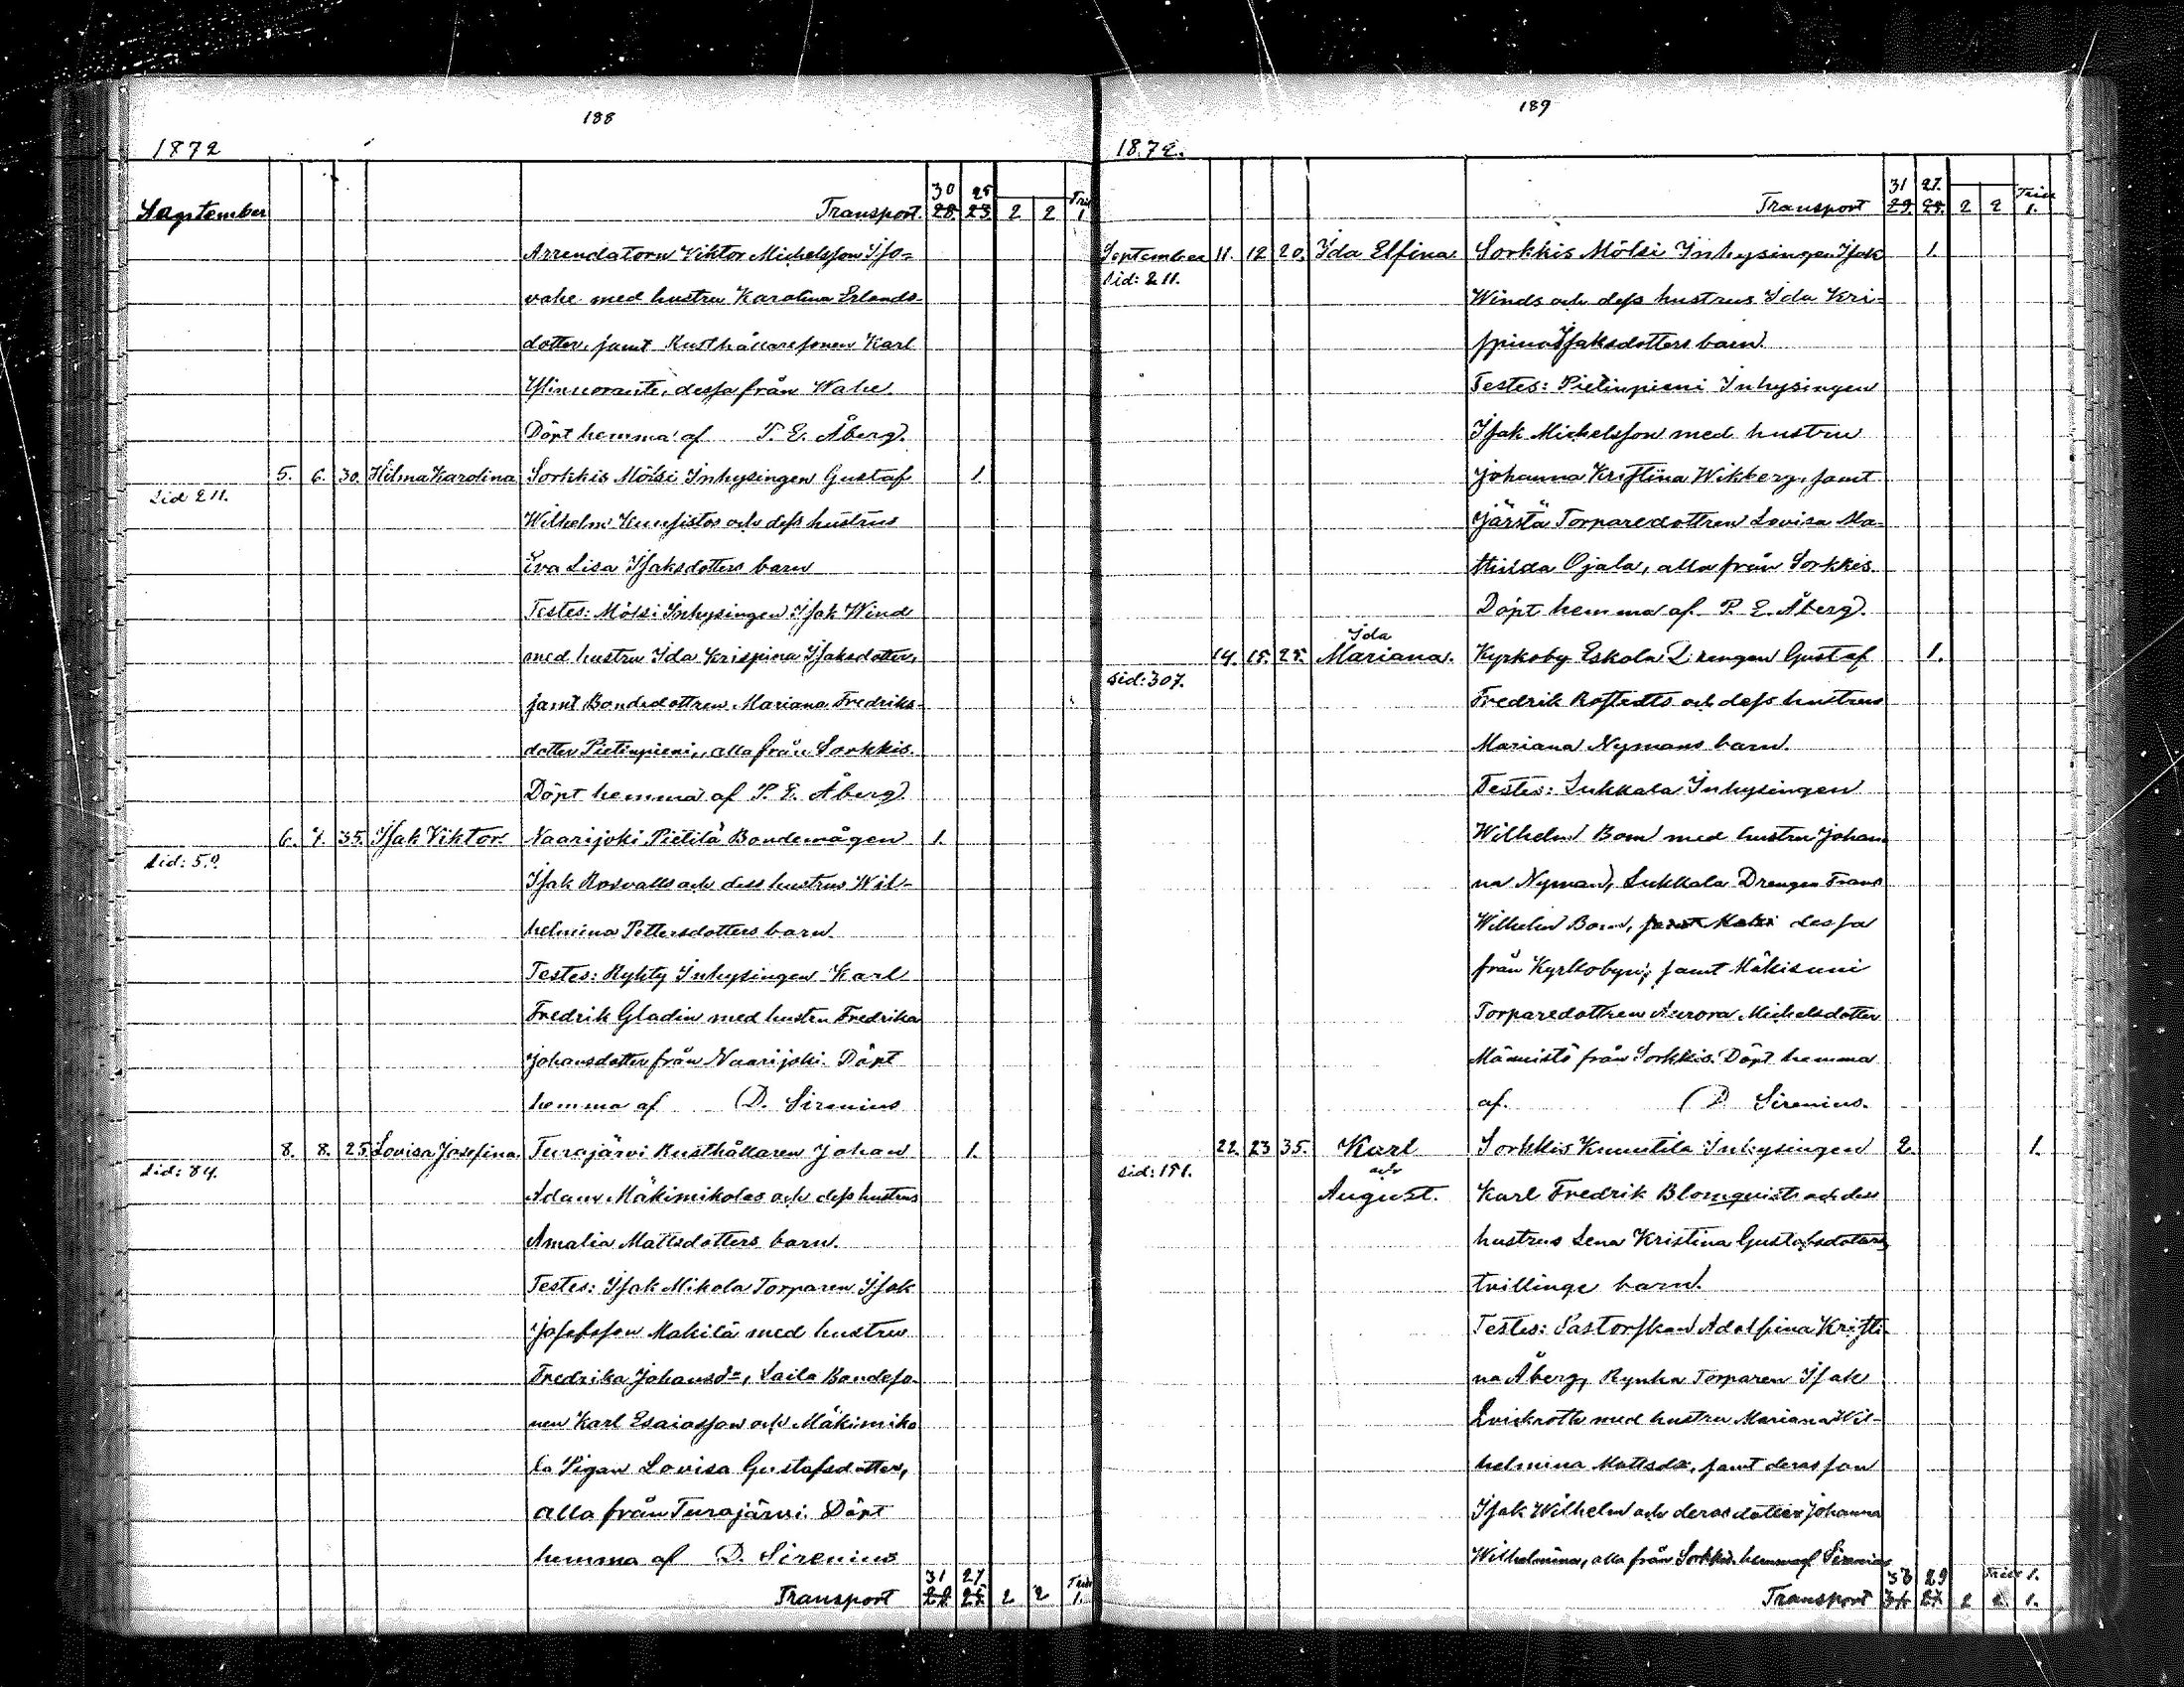 188
1872
September
30 25
Transport. 28. 23. 2 2 1.
Arrendatorn Viktor Michelsson Iso-
vahe med hustru Karolina Erlands-
dotter, samt Rusthållaresonen Karl
dessa från Wahe.
Döpt hemma af P. E. Åberg.
5. 6. 30. Hilma Karolina Sorkkis Mölsi Inhysingen Gustaf 1.
Sid 211.
Wilhelm och dess hustrus
Eva Lisa Isaksdotters barn
Testes: Mölsi Inhysingen Isak Wind
med hustru Ida Krispina Isaksdotter,
samt Bondedottren Mariana Fredriks-
dotter Pietinpieni, alla från Sorkkis.
Döpt hemma af P. E. Åberg.
6. 7. 35. Isak Viktor. Naarijoki Pietilä Bondemågen 1.
Sid: 59.
Isak Rosvalls och dess hustrus Wil-
helmina Pettersdotters barn.
Testes: Rykty Inhysingen Karl
Fredrik Gladin med hustru Fredrika
Johansdotter från Naarijoki. Döpt
hemma af D. Sirenius
8. 8. 25 Lovisa Josefina. Turajärvi Rusthållaren Johan 1.
Sid: 84.
Adam Mäkimikolas och dess hustrus
Amalia Mattsdotters barn.
Testes: Isak Mikola Torparen Isak
Josefsson Makilä med hustru
Fredrika Johansdr, Saila Bondeso-
nen Karl Esaiasson och Mäkimiko
la Pigan Lovisa Gustafsdotter,
alla från Turajärvi. Döpt
hemma af D. Sirenius
31 27
Transport 28. 25. 2 2 1.
189
1872.
31 27.
Transport 29. 25. 2 2 1.
September 11. 12 20. Ida Elfina. Sorkkis Mölsi Inhysingen Isak 1.
Sid: 211.
Winds och dess hustrus Ida Kri-
spina Isaksdotters barn.
Testes: Pietinpieni Inhysingen
Isak Michelsson med hustru
Johanna Kristina Wikberg, samt
Järstä Torparedottren Lovisa Ma-
thilda Ojala, alla från Sorkkis.
Döpt hemma af P. E. Åberg.
Ida
14. 15. 25. Mariana. Kyrkoby Eskola Drengen Gustaf 1.
Sid: 307.
Fredrik Rostedts och dess hustrus
Mariana Nymans barn.
Testes: Sukkala Inhysingen
Wilhelm Bom med hustru Johan-
na Nyman, Sukkala Drengen Frans
Wilhelm Bom, dessa
från Kyrkobyn, samt Mäkisuni
Torparedottren Aurora Michelsdotter
Männistö från Sorkkis. Döpt hemma
af. D. Sirenius.
22. 23 35. Karl Sorkkis Knuutila Inhysingen 2. 1.
Sid: 181.
och
August. Karl Fredrik Blomquists och dess
hustrus Lena Kristina Gustafsdotters
tvillinge barn.
Testes: Pastorskan Adolfina Kristi-
na Åberg, Rynka Torparen Isak
Qvickroth med hustru Mariana Wil-
helmina Mattsdr, samt deras son
Isak Wilhelm och deras dotter Johanna
Wilhelmina, alla från Sorkkis. hemma af Sirenius
33 29 1.
Transport 31. 27. 2 2 1.